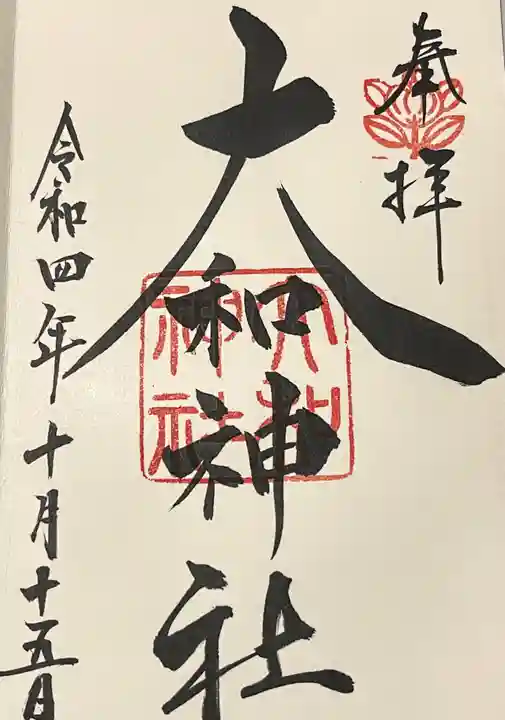 奉拝
大和神社
大和
神社
令和四年十月十五日